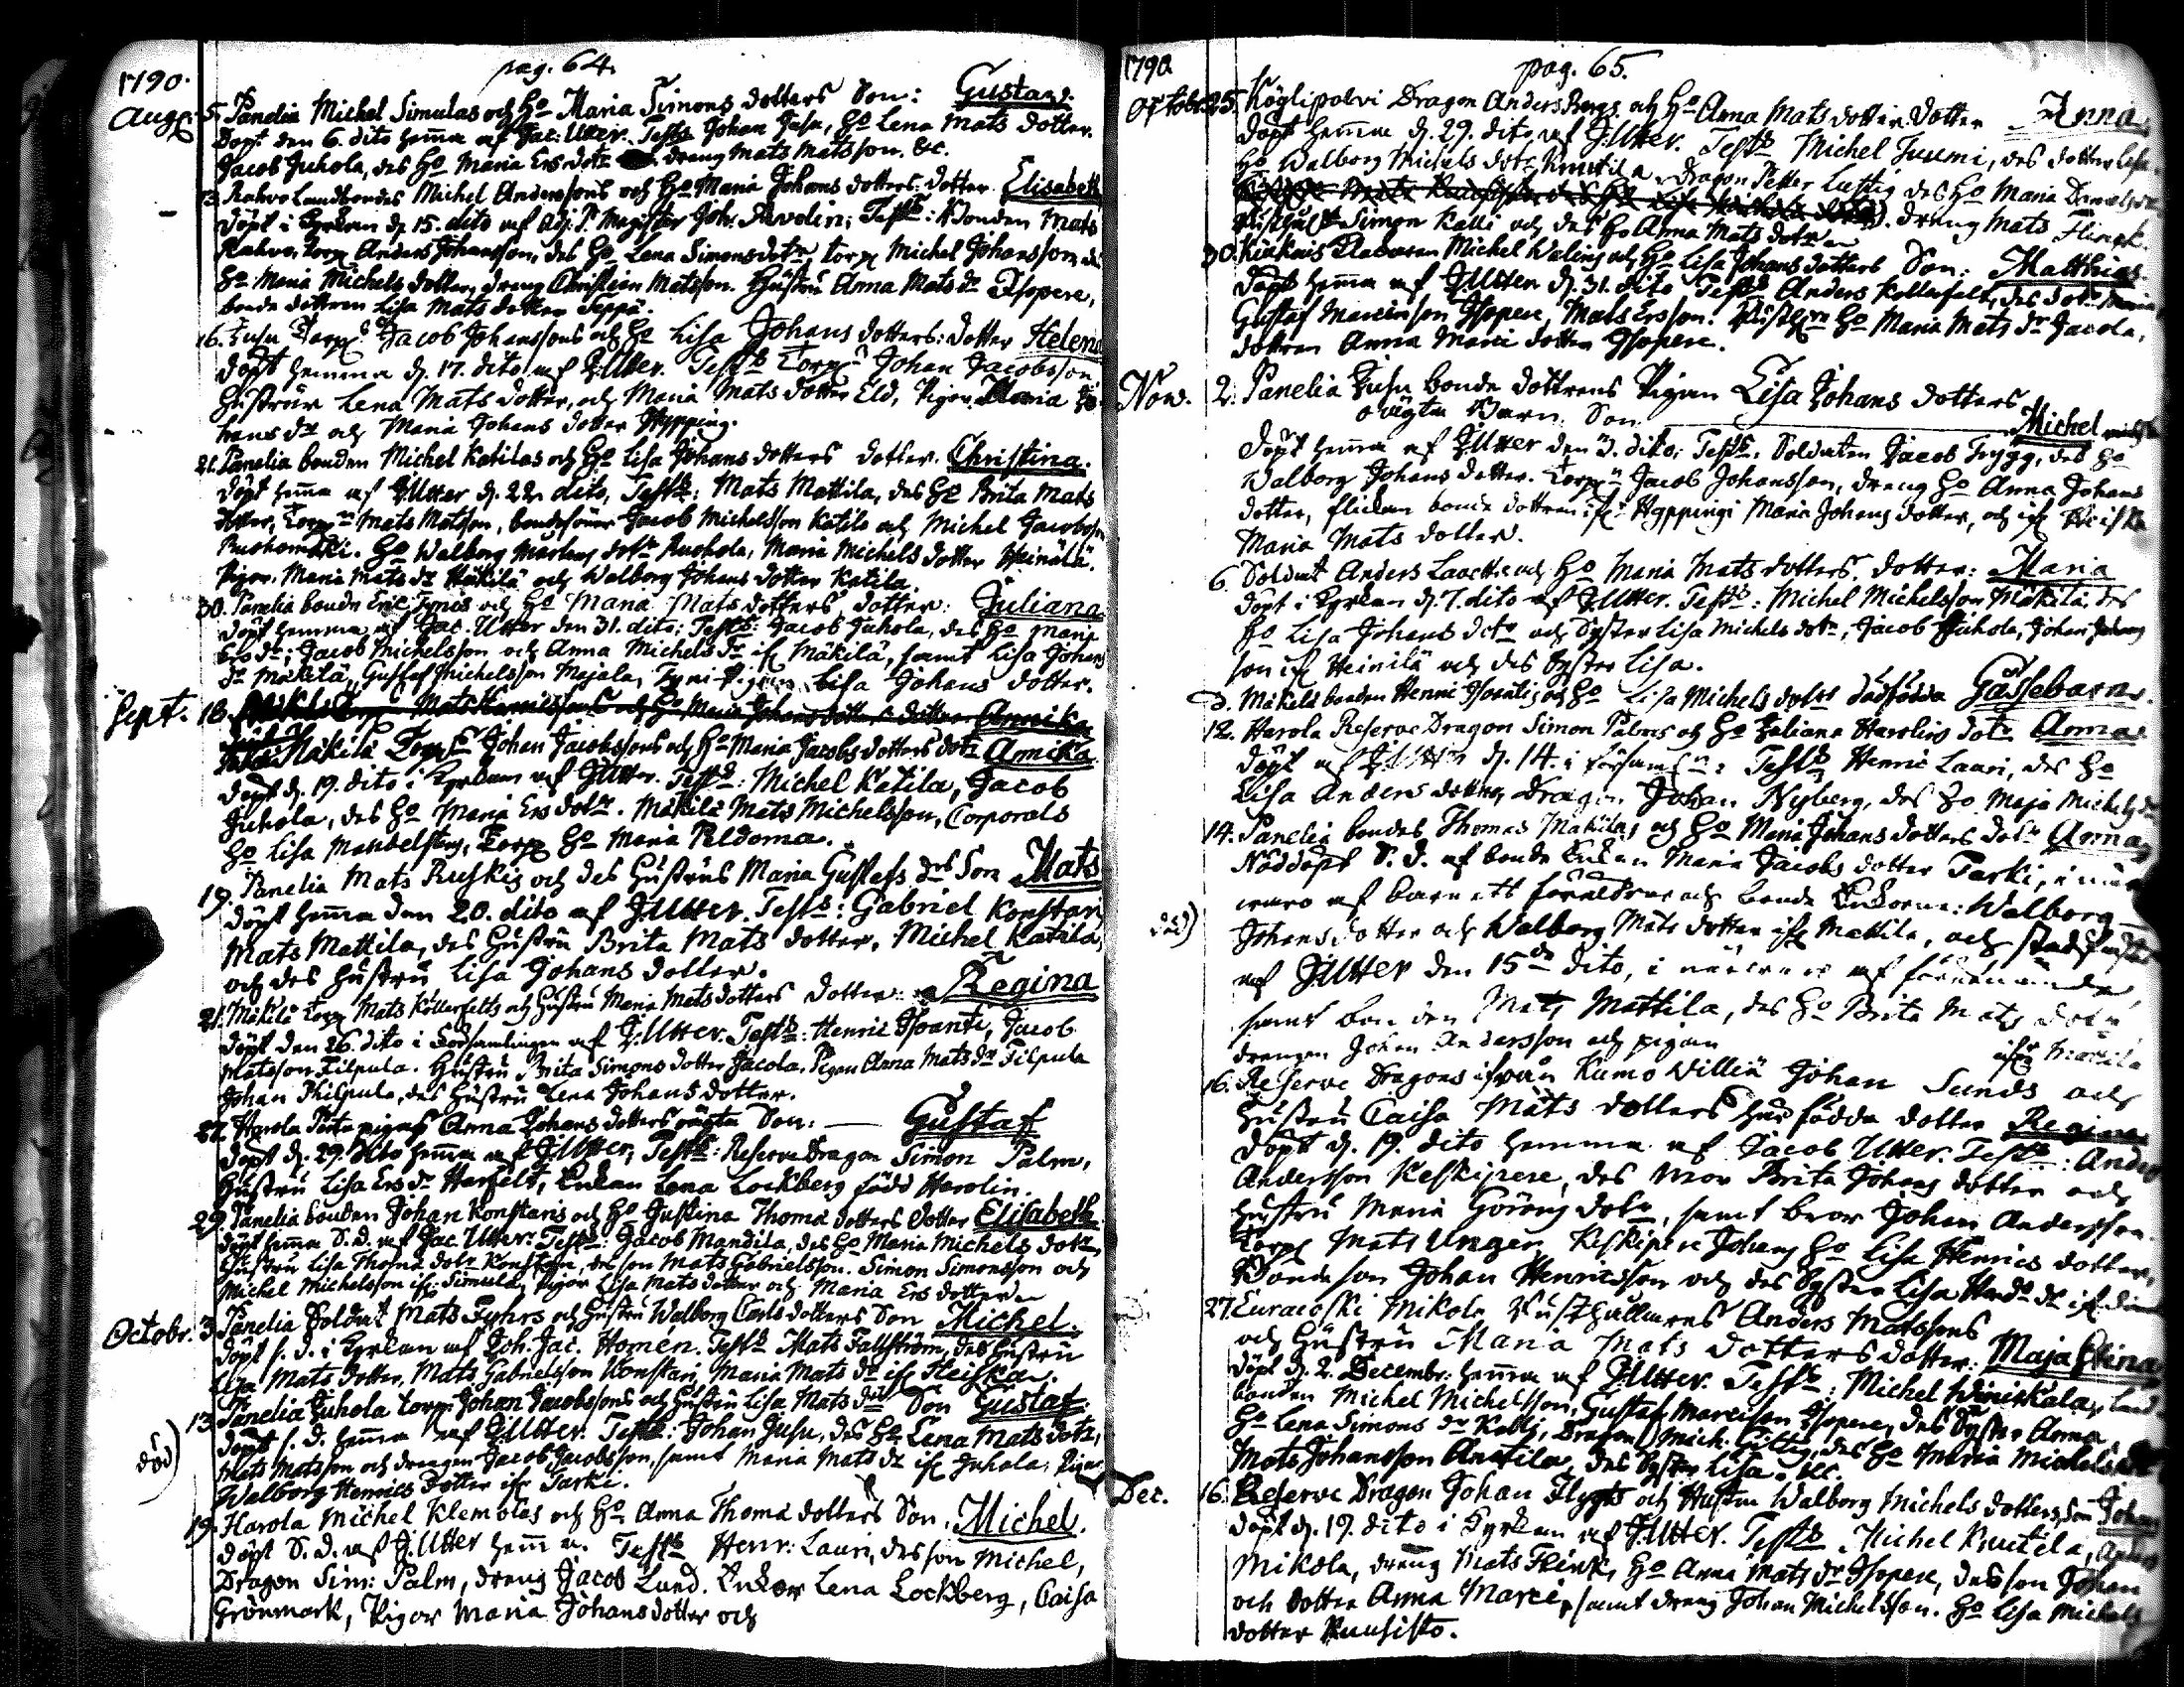 pag. 64.
1790.
Aug. 5. Panelia Michel Simulas och Ho Maria Simons dotters Son: Gustav.
Döpt den 6. dito hemma af Jac. Utter. Test: Johan Jusu, Ho Lena Mats dotter.
Jacob Juhola, des Ho Maria Ers dotr dreng Mats Matsson. &c.
13. Rahvo Landbondes Michel Anderssons och Ho Maria Johans dotters dotter. Elisabeth
Döpt i Kyrkan d. 15. dito af Adj. Magister Joh. Avelin; Test: Bonden Mats
Rahvo, torp Anders Johansson, des Ho Lena Simonsdotr, torp Michel Johansson des
Ho Maria Michels dotter, dreng Christian Matsson. Hustru Anna Mats dr Isopere,
bonde dottren Lisa Mats dotter Seppä.
16. Jusu Torp Jacob Johanssons och Ho Lisa Johans dotters: dotter Helena
Döpt hemma d. 17. dito af J. Utter. Test Torp Johan Jacobsson
Hustrur Lena Mats dotter, och Maria Mats dotter Eld, Pigor Maria Jo-
hans dr och Maria Johans dotter Hypping.
21. Panelia bonden Michel Katilas och Ho Lisa Johans dotters dotter. Christina.
Döpt hemma af J Utter d. 22. dito, Test: Mats Mattila, des Ho Brita Mats
dotter, Torp Mats Matsson, bondesöner Jacob Michelsson Katila och Michel Jacobsson
Ruohomäki. Ho Walborg Martens dotr Ruohola, Maria Michels dotter Heinilä.
Pigor. Maria Mats dr Mäkilä och Walborg Johans dotter Katila.
30. Panelia bonde Eric Tynis och Ho Maria Mats dotters dotter: Juliana
Döpt hemma af Jac. Utter den 31. dito; Test: Jacob Juhola, des Ho Maria
Ers dr; Jacob Michelsson och Anna Michels dr ifr Mäkilä, samt Lisa Johans
dr Mäkilä, Gustaf Michelsson Majala, Tyni Pigan Lisa Johans dotter.
Sept. 18. Mats och Ho Maria Johans dotters dotter Annika
Mäkilä Torp Johan Jacobssons och Ho Maria Jacobs dotters dotr Annika
Döpt d. 19. dito i Kyrkan af J Utter. Test: Michel Katila, Jacob
Juhola, des Ho Maria Ers dotr. Mäkilä Mats Michelsson, Corporals
Ho Lisa Mandelsteng, Torp Ho Maria Peldoma.
19. Panelia Mats Ruskis och des Hustrus Maria Gustafs drs Son Mats
Döpt hemma den 20. dito af J Utter. Test: Gabriel Konstari
Mats Mattila, des Hustru Brita Mats dotter, Michel Katila,
och des hustru Lisa Johans dotter.
21. Mäkilä Torp Mats Kollerfelts och Hustru Maria Matsdotters dotter: Regina
Döpt den 26. dito i Församlingen af J. Utter. Test: Henric Isoanti, Jacob
Matsson Filpula. Hustru Brita Simons dotter Jacola. Pigan Anna Mats dr Filpula
Johan Philpula, des Hustru Lena Johans dotter.
27. Harola pigas Anna Johans dotters oägta Son: Gustaf
Döpt d. 29. dito hemma af J Utter; Test: Reserve Dragon Simon Palm,
Hustru Lisa Ers dr Harfelt, Enkan Lena Lockberg född Harolin.
29. Panelia bonden Johan Konstaris och Ho Justina Thoma dotters dotter Elisabeth
Döpt hemma S. d. af Jac. Utter. Test: Jacob Mandila, des Ho Maria Michels dotr,
Hustru Lisa Thoma dotr Konstari, des son Mats Gabrielsson. Simon Simonsson och
Michel Michelsson ifr Simula, Pigor Lisa Mats dotter och Maria Ers dotter
Octobr. 3. Panelia Soldat Mats Fyhrs och Hustru Walborg Carls dotters Son Michel.
Döpt s. d. i Kyrkan af Joh. Jac. Homen. Test Mats Fallström, des Hustru
Lisa Mats dotter, Mats Gabrielsson Konstari, Maria Mats dr ifr Heiska.
13. Panelia Juhola torp: Johan Jacobssons och Hustru Lisa Mats drs Son Gustaf
Döpt s. d. hemma af J Utter. Test: Johan Jusu, des Ho Lena Mats dotr,
död)
Mats Matsson och drengen Jacob Jacobsson, samt Maria Mats dr ifr Juhola, Pigan
Walborg Henrics dotter ifr Tarki.
19. Harola Michel Klemolas och Ho Anna Thoma dotters Son, Michel.
Döpt S. d. af J. Utter hemma. Test Henr: Lauri, des son Michel,
Dragon Sim: Palm, dreng Jacob Lund. Enkor Lena Lockberg, Caisa
Grönmark, Pigor Maria Johansdotter och
pag. 65.
1790.
Octobr. 25. Köylipolvi Dragon Anders Bergs och Ho Anna Mats dotters dotter Anna
Döpt hemma d. 29. dito af J. Utter. Test Michel Tuumi, des dotter Lisa.
Ho Walborg Michels dotr Knutila, Dragon Petter Lustig des Ho Maria Danielsdr
Simon Kalli och des Ho Anna Mats dotr. dreng Mats Flinck.
30. Kiukais Michel Welins och Ho Lisa Johans dotters Son: Matthias.
Döpt hemma af J Utter d. 31. dito Test Anders Kollerfelt, des dotr Maria
Gustaf Marcusson Isopere, Mats Ersson. Ho Maria Mats dr Jacola,
dottren Anna Marci dotter Isopere.
Nov. 2. Panelia Jusu bonde dottrens Pigan Lisa Johans dotters
oägta Barn. Son Michel
Döpt hemma af J Utter den 3. dito: Test. Soldaten Jacob Trygg, des Ho
Walborg Johans dotter. Torp Jacob Johansson, dreng Ho Anna Johans
dotter, flickan bonde dottren ifr Hyppingi Maria Johans dotter, och ifr Heiska
Maria Mats dotter.
6. Soldat Anders och Ho Maria Mats dotters. dotter: Maria
Döpt i Kyrkan d. 7. dito af J Utter. Test: Michel Michelsson Mäkilä, des
Ho Lisa Johans dotr och Syster Lisa Michels dotr, Jacob Juhola, Johan Johans
son ifr Heinilä och des Syster Lisa.
d. Mäkilä bonden Henric Isoantis och Ho Lisa Michels dotrs dödfödda Gossebarn.
12. Harola Reserve Dragon Simon Palms och Ho Juliana Harolins dotr Anna
Döpt af J Utter d. 14. i församl: Test Henric Lauri, des Ho
Lisa Anders dotter, Dragon Johan Nyberg, des Ho Maja Michels dr
14. Panelia bondes Thomas Mäkiläs och Ho Maria Johans dotters dotr Anna
Nöddöpt S. d. af bonde Enkan Maria Jacobs dotter Tarki, i när
varo af barnets föräldrar och bonde Enkorna: Walborg
död)
Johans dotter och Walborg Mats dotter ifr Mattila, och
af J Utter den 15de dito, i närvaro af förenämnde
samt bonden Mats Mattila, des Ho Brita Mats dotr
drengen Johan Andersson och pigan ifr Mattila
16. Reserve Dragons ifrån Kumo Villiä Johan Sunds och
Hustru Caisa Mats dotters här födda dotter Regina
Döpt d. 19. dito hemma af Jacob Utter. Test: Anders
Andersson Keskipere, des mor Brita Johans dotter och
Hustru Maria Görans dotr, samt bror Johan Andersson
Torp Mats Unger, Keskipere Johans Ho Lisa Henrics dotter,
Bondeson Johan Henricsson och des Syster Lisa
27. Euraåski Mikola Anders Matssons
och Hustru Maria Mats dotters dotter: Maja Stina
Döpt d. 2. Decembr. hemma af J Utter. Test: Michel Land-
bonden Michel Michelsson, Gustaf Marcisson Isopere, des Syster Anna
Ho Lena Simons dr Kalli, Dragon Mich. Giltig, des Ho Maria Michels
Mats Johansson Anttila, des Syster Lisa. &c.
Dec. 16. Reserve Dragon Johan Flygts och Hustru Walborg Michels dotters Son Johan
Döpt d. 19. dito i Kyrkan af J Utter. Test Michel Knutila, Anders
Mikola, dreng Mats Flink, Ho Anna Mats dr Isopere, des son Johan
och dotter Anna Marci, samt dreng Johan Michelsson. Ho Lisa Michels
dotter Kuusisto.